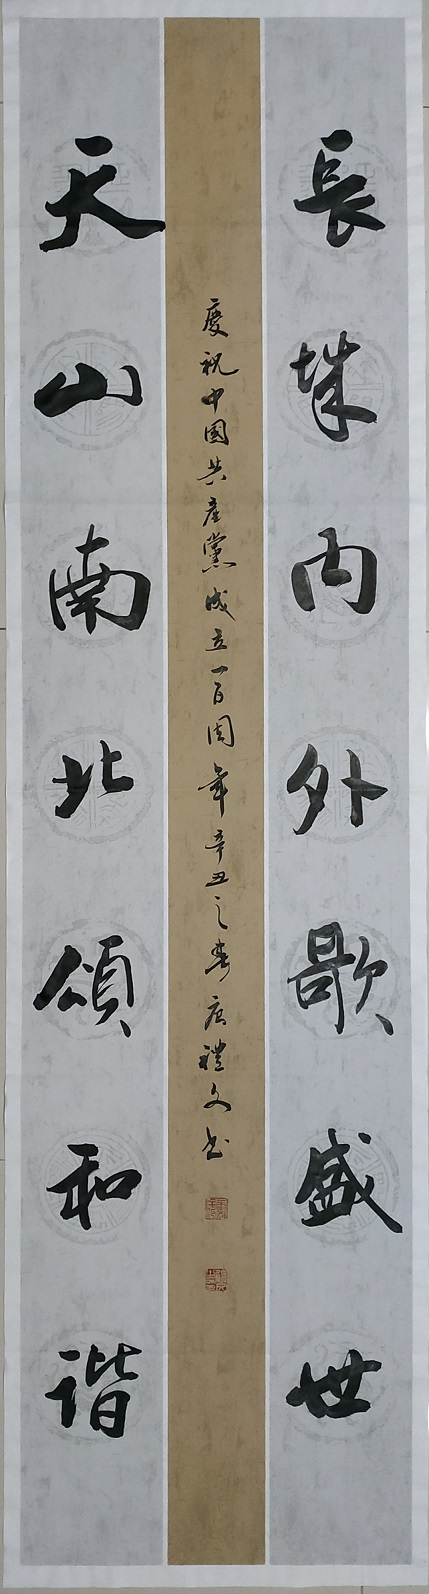 長城內外歌盛世
慶祝中國共產黨成立一百周年辛丑之春唐禮文书
天山南北頌和谐